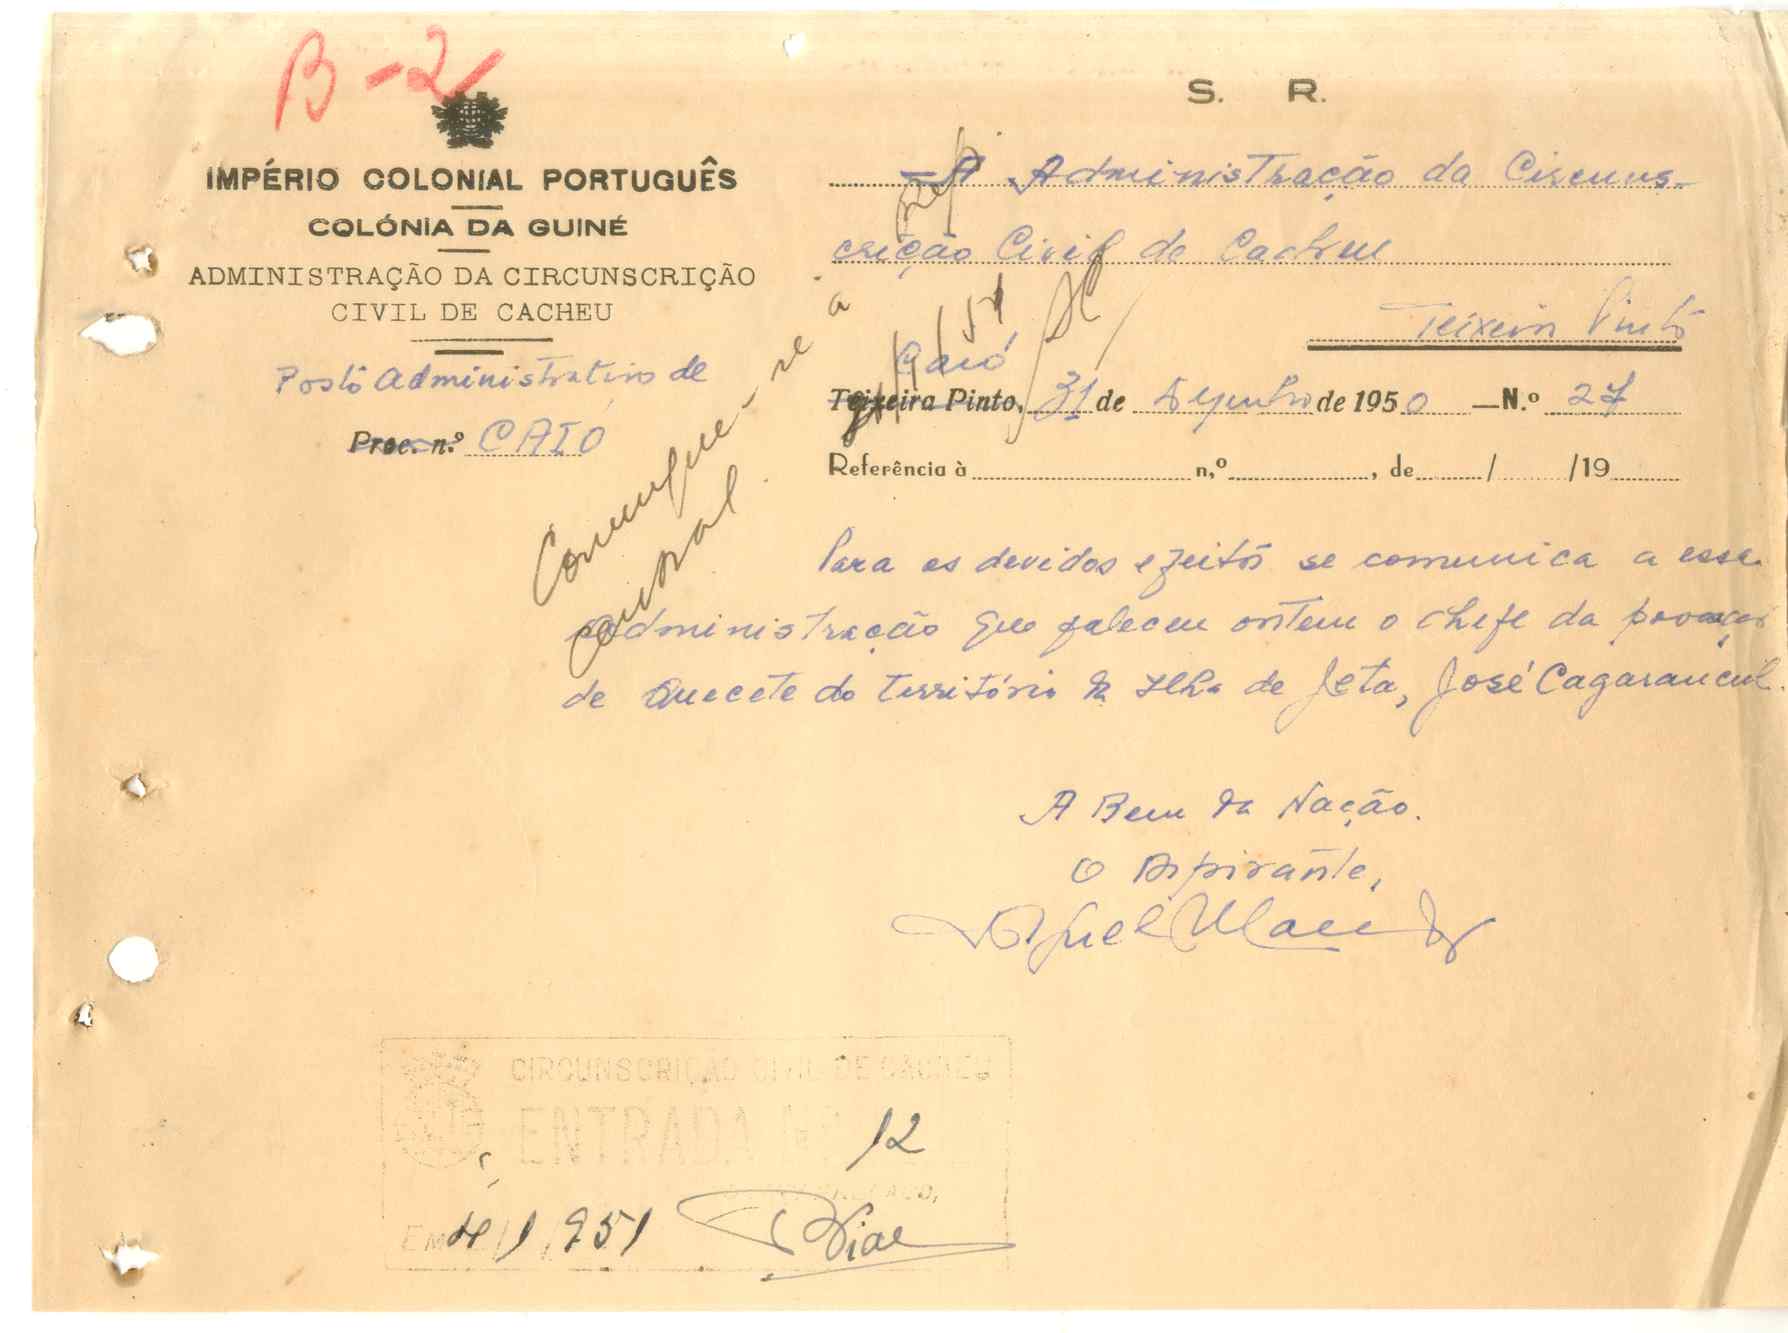 B-2
S. R.
IMPÉRIO COLONIAL PORTUGUÊS
COLÓNIA DA GUINÉ
ADMINISTRAÇÃO DA CIRCUNSCRIÇÃO
CIVIL DE CACHEU
Posto Administrativo de
Proc. n.º CAIÓ
À Administração da Circuns-
crição Civil de Cacheu
Teixeira Pinto
Caió
Teixeira Pinto, 31 de Dezembro de 1950 — N.º 27
Referência à n,º , de / /19
Comunique-se à
central
/1/51
Para os devidos efeitos se comunica a essa
Administração que faleceu ontem o chefe da povoação
de Quecete do território da Ilha de Jeta, José Cagarancul.
A Bem da Nação.
O Aspirante,
CIRCUNSCRIÇÃO CIVIL DE CACHEU
ENTRADA Nº 12
EM 4/1/951